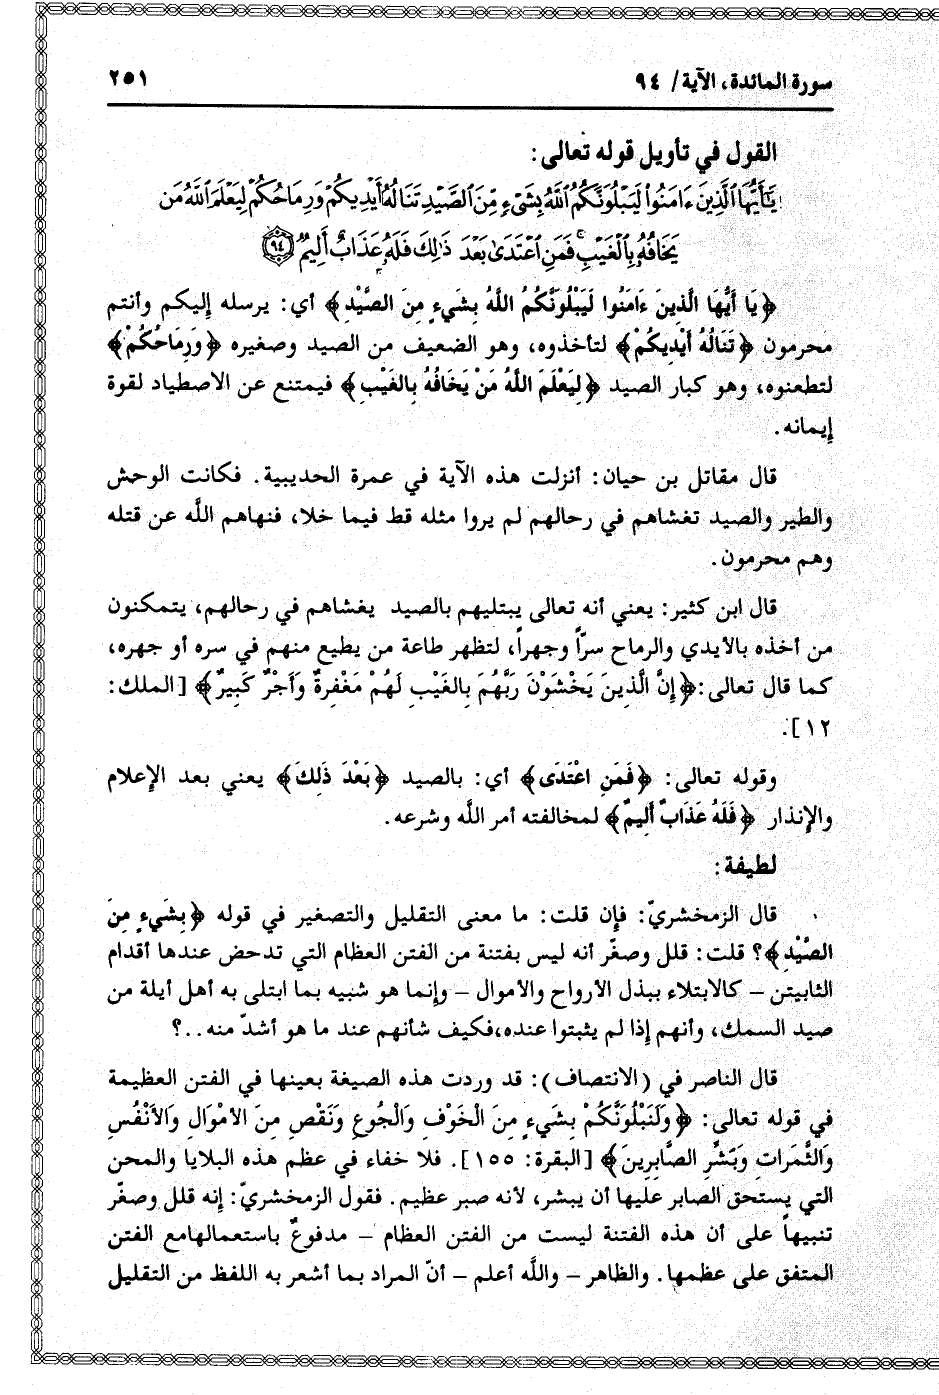 سورة المائدة، الآية/ ٩٤
٢٥١
القول في تأويل قوله تعالى:
يَٰٓأَيُّهَا ٱلَّذِينَ ءَامَنُوا۟ لَيَبْلُوَنَّكُمُ ٱللَّهُ بِشَىْءٍ مِّنَ ٱلصَّيْدِ تَنَالُهُۥٓ أَيْدِيكُمْ وَرِمَاحُكُمْ لِيَعْلَمَ ٱللَّهُ مَن
يَخَافُهُۥ بِٱلْغَيْبِ ۚ فَمَنِ ٱعْتَدَىٰ بَعْدَ ذَٰلِكَ فَلَهُۥ عَذَابٌ أَلِيمٌ ٩٤
﴿يَا أَيُّهَا الَّذينَ ءَامَنُوا لَيَبْلُوَنَّكُمُ اللَّهُ بِشَيءٍ مِنَ الصَّيْدِ﴾ أي: يرسله إليكم وأنتم
محرمون ﴿تَنَالُهُ أَيْدِيكُمْ﴾ لتأخذوه، وهو الضعيف من الصيد وصغيره ﴿وَرِمَاحُكُمْ﴾
لتطعنوه، وهو كبار الصيد ﴿لِيَعْلَمَ اللَّهُ مَنْ يَخَافُهُ بِالغَيْبِ﴾ فيمتنع عن الاصطياد لقوة
إيمانه.
قال مقاتل بن حيان: أنزلت هذه الآية في عمرة الحديبية. فكانت الوحش
والطير والصيد تغشاهم في رحالهم لم يروا مثله قط فيما خلا، فنهاهم اللَّه عن قتله
وهم محرمون.
قال ابن كثير: يعني أنه تعالى يبتليهم بالصيد يغشاهم في رحالهم، يتمكنون
من أخذه بالأيدي والرماح سرّاً وجهراً، لتظهر طاعة من يطيع منهم في سره أو جهره،
كما قال تعالى: ﴿إِنَّ الَّذِينَ يَخْشَوْنَ رَبَّهُمَ بِالغَيْبِ لَهُمْ مَغْفِرةٌ وَأَجْرٌ كَبِيرٌ﴾ [الملك:
١٢].
وقوله تعالى: ﴿فَمَنِ اعْتَدَى﴾ أي: بالصيد ﴿بَعْدَ ذَلِكَ﴾ يعني بعد الإعلام
والإنذار ﴿فَلَهُ عَذَابٌ أَلِيمٌ﴾ لمخالفته أمر اللَّه وشرعه.
لطيفة:
قال الزمخشريّ: فإن قلت: ما معنى التقليل والتصغير في قوله ﴿بِشَيءٍ مِنَ
الصَّيْدِ﴾؟ قلت: قلل وصغّر أنه ليس بفتنة من الفتن العظام التي تدحض عندها أقدام
الثابيتن – كالابتلاء ببذل الأرواح والأموال – وإنما هو شبيه بما ابتلى به أهل أيلة من
صيد السمك، وأنهم إذا لم يثبتوا عنده،فكيف شأنهم عند ما هو أشدّ منه..؟
قال الناصر في (الانتصاف): قد وردت هذه الصيغة بعينها في الفتن العظيمة
في قوله تعالى: ﴿وَلَنَبْلُوَنَّكُمْ بِشَيءٍ مِنَ الْخَوْفِ وَالْجُوعِ وَنَقْصٍ مِنَ الأَمْوَالِ وَالأَنْفُسِ
وَالثَّمَرَاتِ وَبَشِّرِ الصَّابِرِينَ﴾ [البقرة: ١٥٥]. فلا خفاء في عظم هذه البلايا والمحن
التي يستحق الصابر عليها أن يبشر، لأنه صبر عظيم. فقول الزمخشريّ: إنه قلل وصغّر
تنبيهاً على أن هذه الفتنة ليست من الفتن العظام – مدفوعٌ باستعمالهامع الفتن
المتفق على عظمها. والظاهر – واللَّه أعلم – أنّ المراد بما أشعر به اللفظ من التقليل